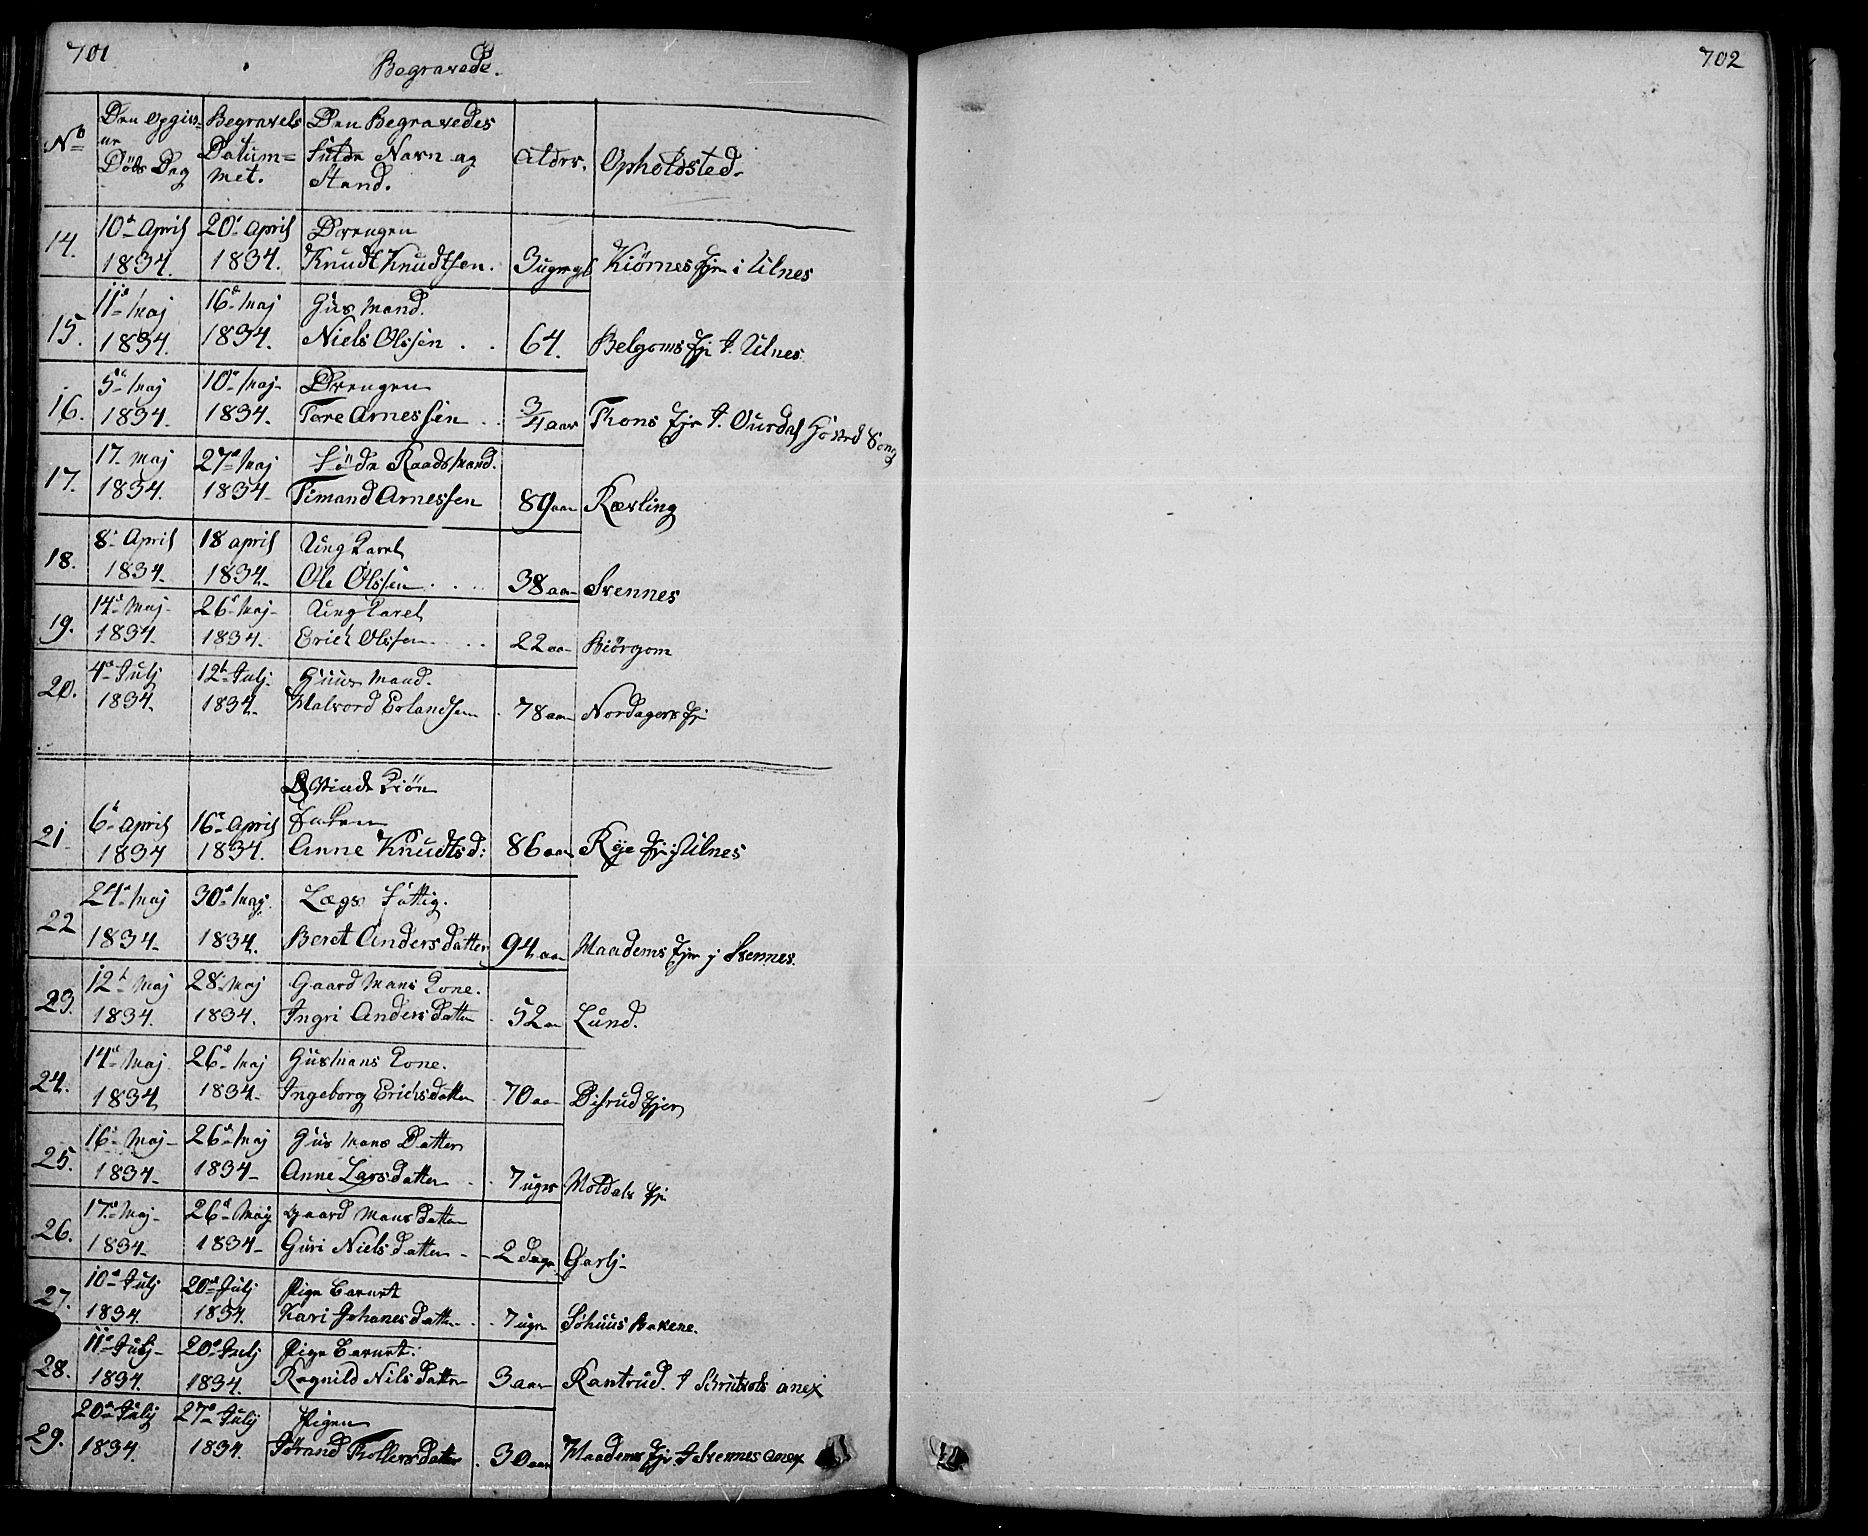 701
Begravede.
No
Den opgivne Døds Dag
Begravels Datummet.
Den Begravedes fulde Navn og Stand.
Alder.
Opholdsted.
14. 10de April 1834. 20de April 1834. Drengen Knudt Knudtsen. 3 uger gl Kiörnes Ejer i Ulnes
15. 11de Maj 1834. 16de Maj 1834. Huus Mand. Niels Olssen . . 64. Belgoms Ej I. Ulnes
16. 5de Maj 1834. 10de Maj 1834. Drengen Tore Arnessen . . 3/4 aar Thons Ejr I. Ourdal
17. 17. Maj 1834. 27de Maj 1834. Föde Raads Mand. Timand Arnessen 89 aar Rævling
18. 8de April 1834. 18 april 1834. Ung Karel Ole Olssen . . . 38 aar Svennes
19. 14de Maj 1834. 26de Maj 1834. Ung Karel Erich Olssen . . . 22 aar Biörgom
20. 4de Julj 1834. 12te Julj 1834. Huus Mand. Halvord Erlandsen . 78 aar Nordagers Ej
Qvinde Kiön
21 6te April 1834 16de April 1834. Enken Anne Knudtsd: 86 aar Rye Ej j Ulnes
22 24de Maj 1834. 30de Maj 1834. Lægs Fattig. Beret Anders datter 94 aar Maadems Ejer j Svennes.
23. 12te Maj 1834. 28de Maj 1834. Gaard Mans Kone. Ingri Anders datter . 52 aar Lund.
24. 14de Maj 1834 26de Maj 1834. Huusmans Kone. Ingeborg Erichsdatter . 70 aar Disrud Ejer
25. 16de Maj 1834. 26de Maj 1834. Huus Mans Datter Anne Larsdatter . . 7 uger Moldals Ej
26. 17de Maj 1834. 26de Maj 1834. Gaard Mans datter Guri Niels datter . 2 dage Garlj
27. 10de Julj 1834. 20de Julj 1834. Pige Barnet Kari Johanes datter . . 7 uger Sohuus Bakene.
28. 11te Julj 1834. 20de Julj 1834. Pige Barnet: Ragnild Nils datter . 3 aar Rantrud. I Skrutvols anex
29. 20de Julj 1834. 27de Julj 1834. Pigen Jörand Thollers datter . 30 aar Maadems Ejr. I Svennes anex
702